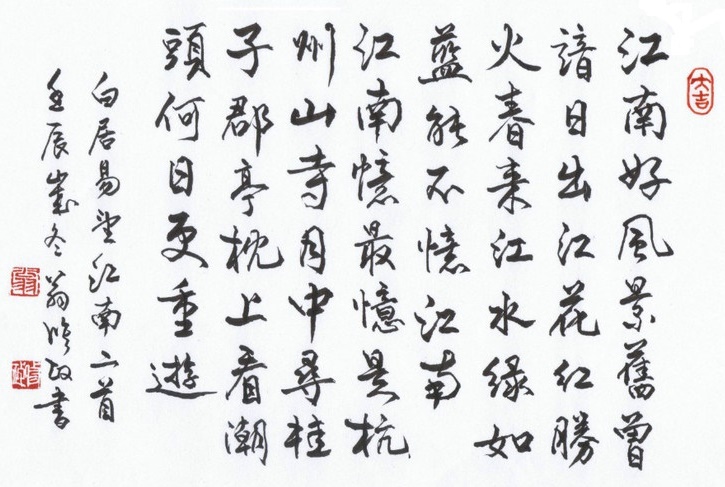 大吉
江南好風景舊曾
諳日出江花紅勝
火春來江水緑如
藍能不憶江南
江南憶最憶是杭
州山寺月中尋桂
子郡亭枕上看潮
頭何日更重遊
白居易望江南二首
壬辰歲冬翁政書